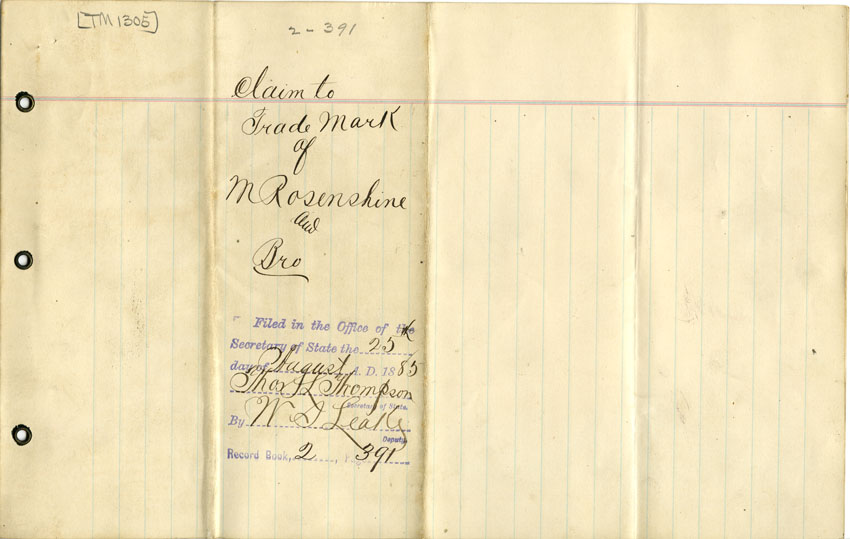 [TM 1305]
2 - 391
Claim to
Trade Mark
of
M Rosenshine
and
Bro
Filed in the Office of the
Secretary of State the 25
day of August A. D. 1885
Thos L Thompson
Secretary of State.
By W. J. Leake
Deputy
Record Book, 2, 391